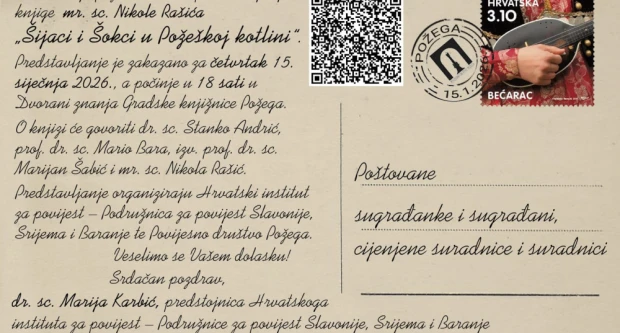 knjige mr. sc. Nikole Rašića
„Šijaci i Šokci u Požeškoj kotlini“.
Predstavljanje je zakazano za četvrtak 15.
siječnja 2026., a počinje u 18 sati u
Dvorani znanja Gradske knjižnice Požega.
O knjizi će govoriti dr. sc. Stanko Andrić,
prof. dr. sc. Mario Bara, izv. prof. dr. sc.
Marijan Šabić i mr. sc. Nikola Rašić.
Predstavljanje organiziraju Hrvatski institut
za povijest – Podružnica za povijest Slavonije,
Srijema i Baranje te Povijesno društvo Požega.
Veselimo se Vašem dolasku!
Srdačan pozdrav,
dr. sc. Marija Karbić, predstojnica Hrvatskoga
instituta za povijest – Podružnice za povijest Slavonije, Srijema i Baranje
POŽEGA
15.1.2026.
HRVATSKA
3.10
BEĆARAC
Poštovane
sugrađanke i sugrađani,
cijenjene suradnice i suradnici